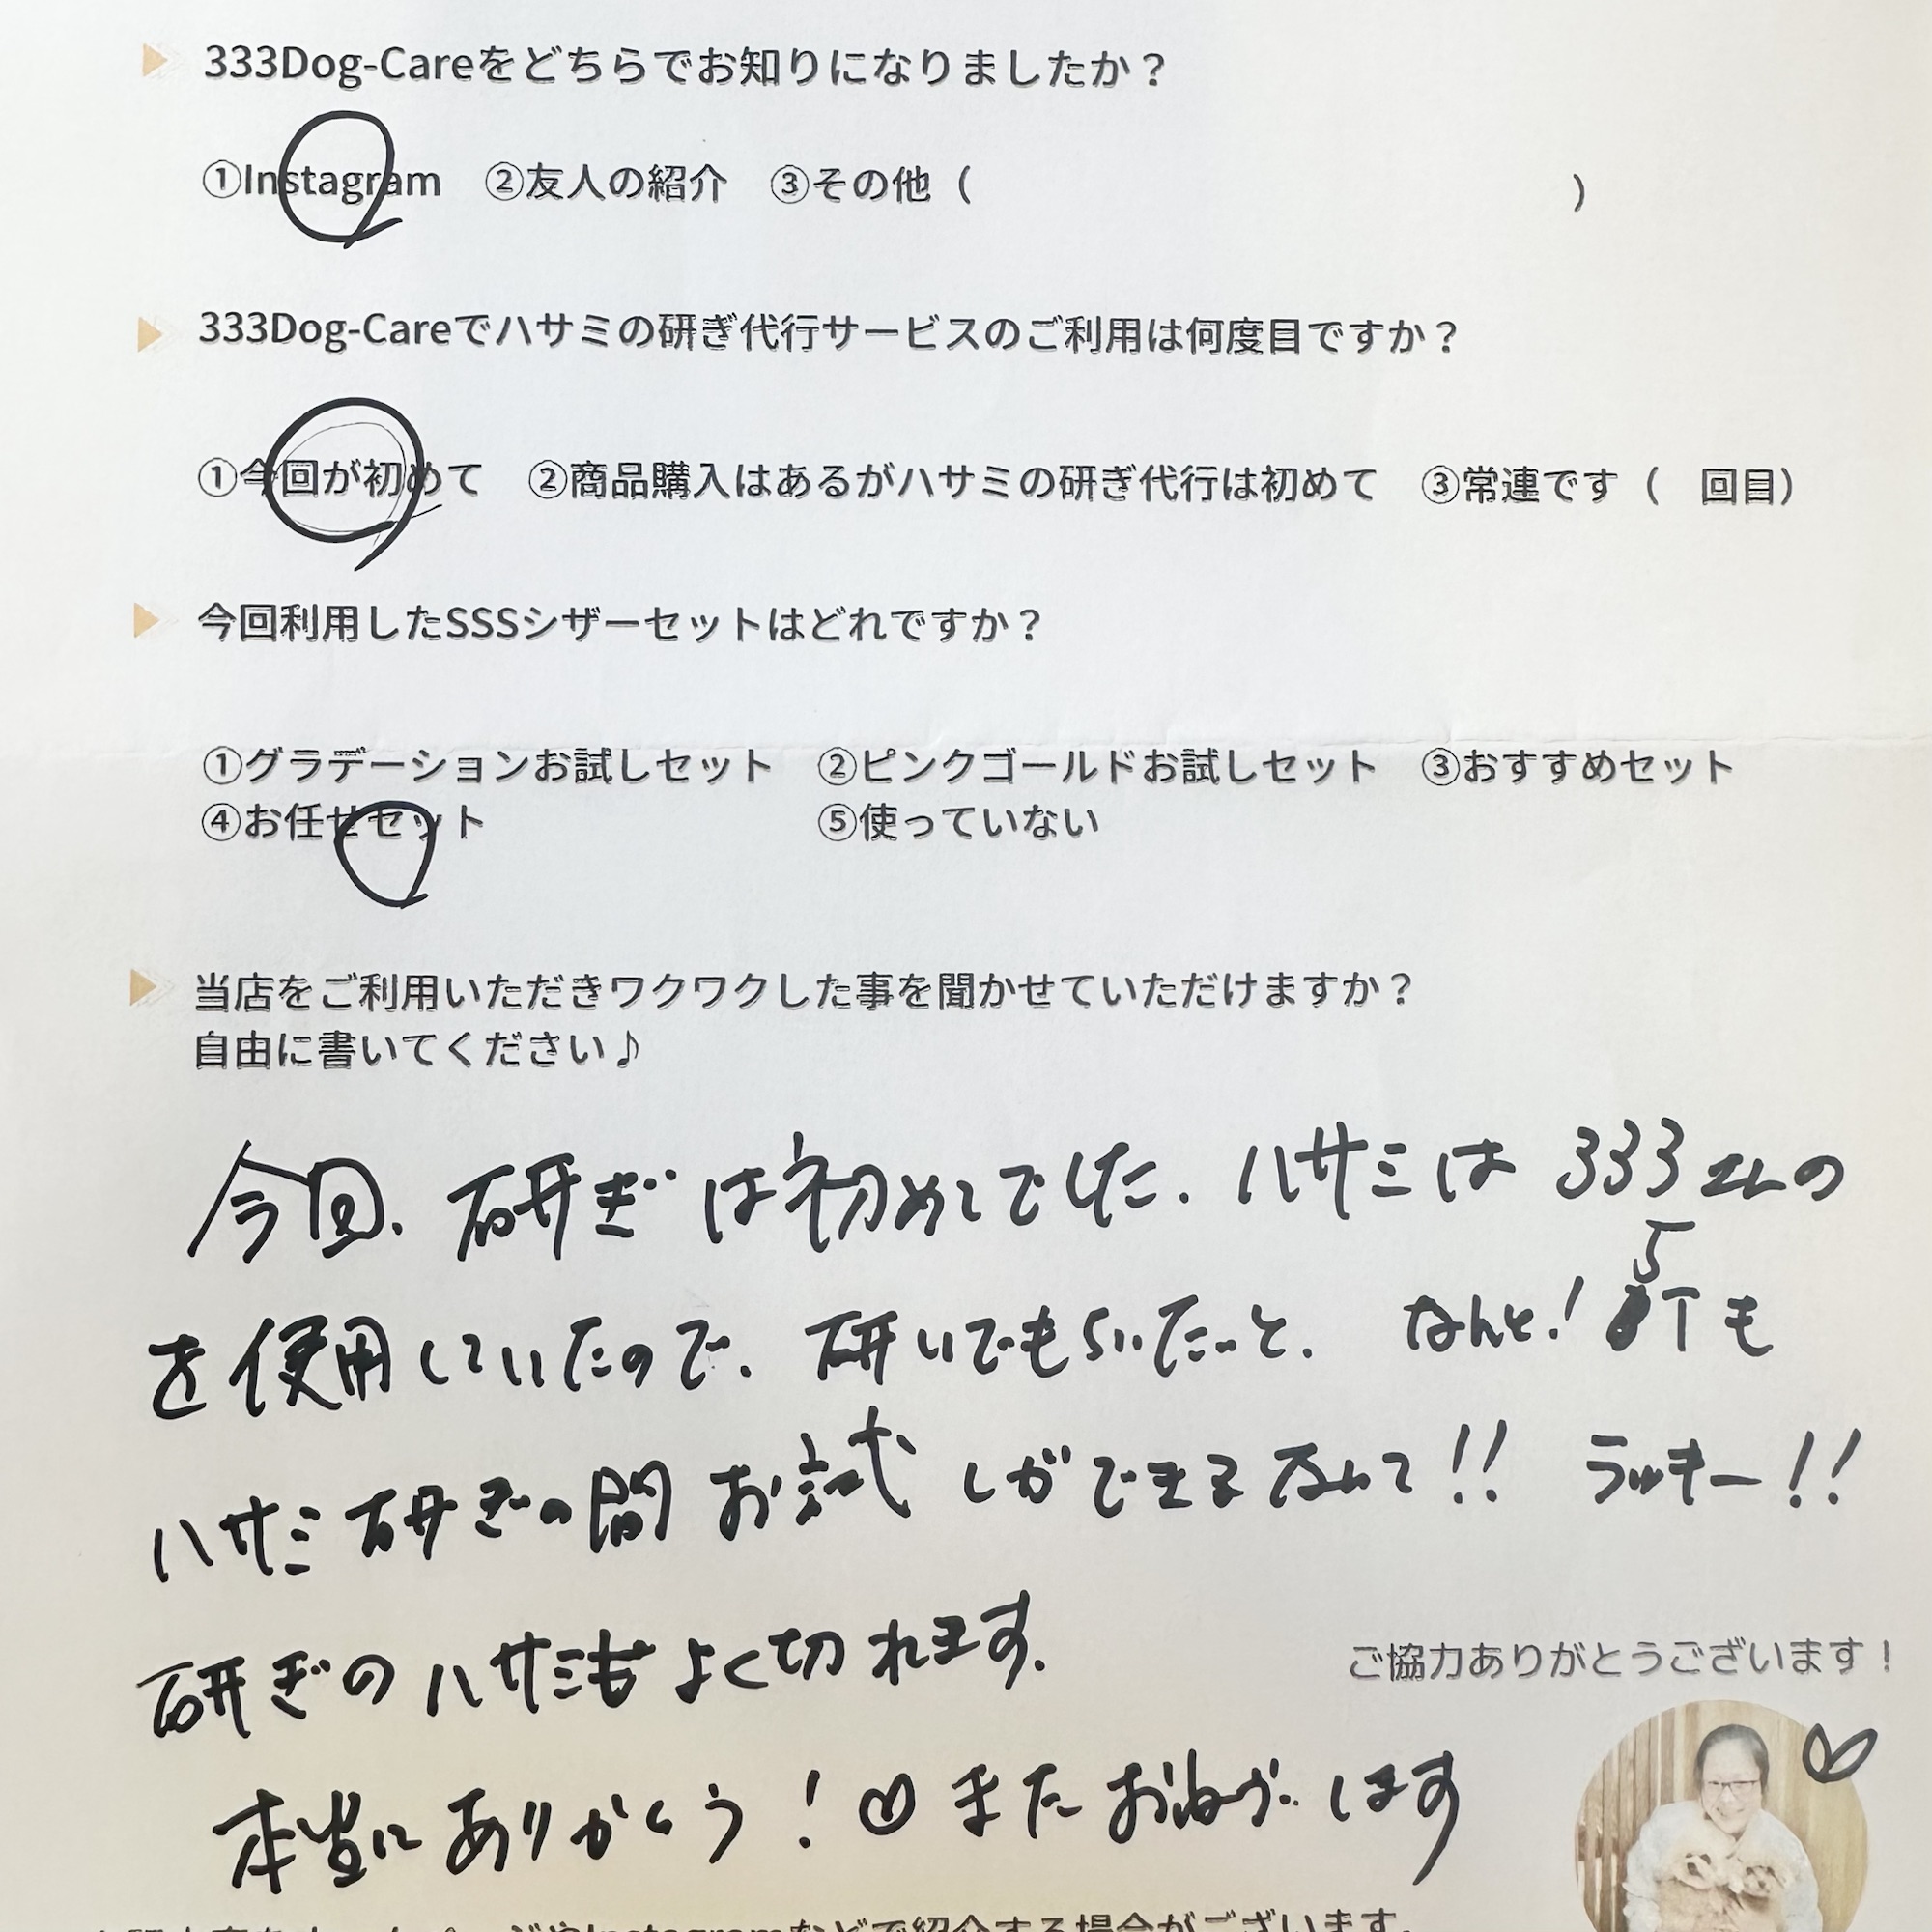 333Dog-Careをどちらでお知りになりましたか？
①Instagram　②友人の紹介　③その他（　　　　　　）
333Dog-Careでハサミの研ぎ代行サービスのご利用は何度目ですか？
①今回が初めて　②商品購入はあるがハサミの研ぎ代行は初めて　③常連です（　回目）
今回利用したSSSシザーセットはどれですか？
①グラデーションお試しセット　②ピンクゴールドお試しセット　③おすすめセット
④お任せセット　⑤使っていない
当店をご利用いただきワクワクした事を聞かせていただけますか？
自由に書いてください♪
今回、研ぎは初めてでした。ハサミは333さんの
を使用していたので、研いでもらいたいと、なんと！5丁も
ハサミ研ぎの間お試しができるなんて!!　ラッキー!!
研ぎのハサミもよく切れます。
ご協力ありがとうございます！
本当にありがとう！♡またおねがいします
ホームページやInstagramなどで紹介する場合がございます。